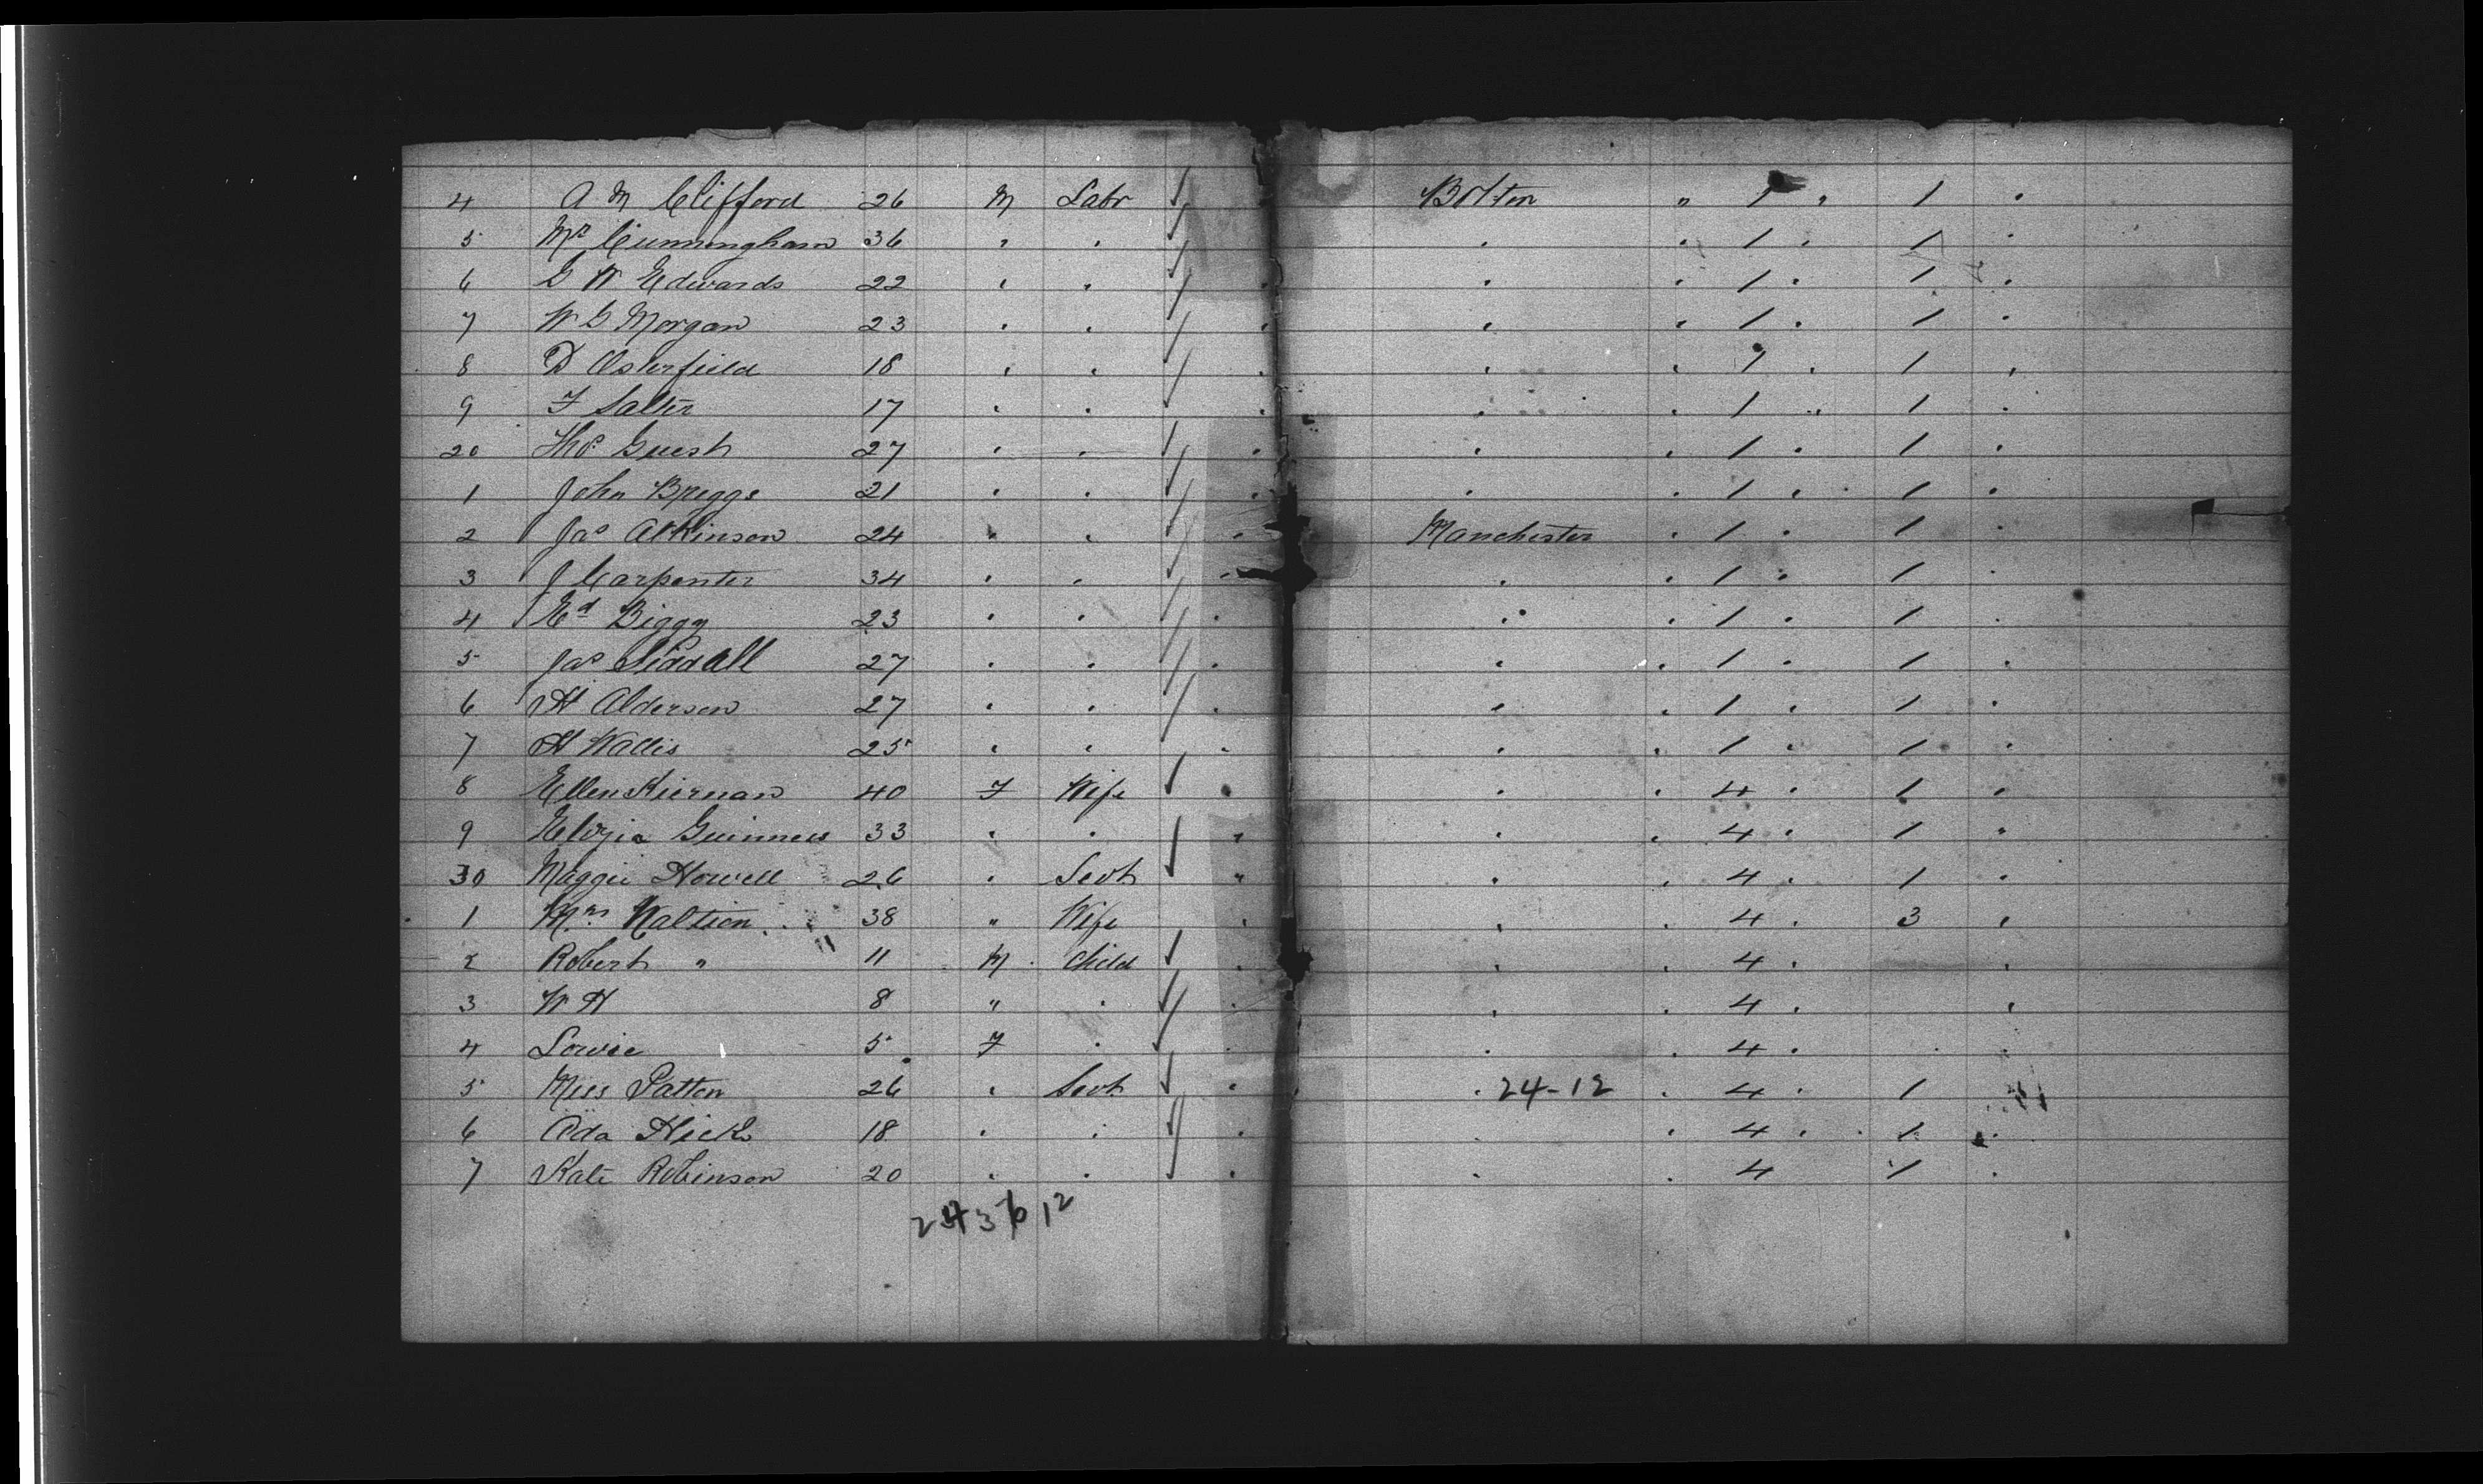 4 A M Clifford 26 M Labr Bolton " 1 " 1 "
5 Mr Cunningham 36 " " " " 1 " 1 "
6 G W Edwards 22 " " " " 1 " 1 "
7 W G Morgan 23 " " " " 1 " 1 "
8 D Osterfield 18 " " " " 1 " 1 "
9 F Salter 17 " " " " 1 " 1 "
20 Thos Guest 27 " " " " 1 " 1 "
1 John Briggs 21 " " " " 1 " 1 "
2 Jas Atkinson 24 " " Manchester " 1 " 1 "
3 J Carpenter 34 " " " " 1 " 1 "
4 Ed Biggy 23 " " " " 1 " 1 "
5 Jas Siddall 27 " " " " 1 " 1 "
6 H Alderson 27 " " " " 1 " 1 "
7 H Wallis 25 " " " " 1 " 1 "
8 Ellen Kiernan 40 F Wife " " 4 " 1 "
9 Guinness 33 " " " " 4 " 1 "
30 Maggie Howell 26 " Sevt " " 4 " 1 "
1 Mrs 38 " Wife " " 4 " 3 "
2 Robert " 11 M Child " " 4 " "
3 W H 8 " " " " 4 " "
4 5 F " " " 4 " "
5 Miss Patton 26 " Sevt " 24-12 " 4 " 1
6 Ada Hick 18 " " " " 4 " 1 "
7 Kate Robinson 20 " " " " 4 1 "